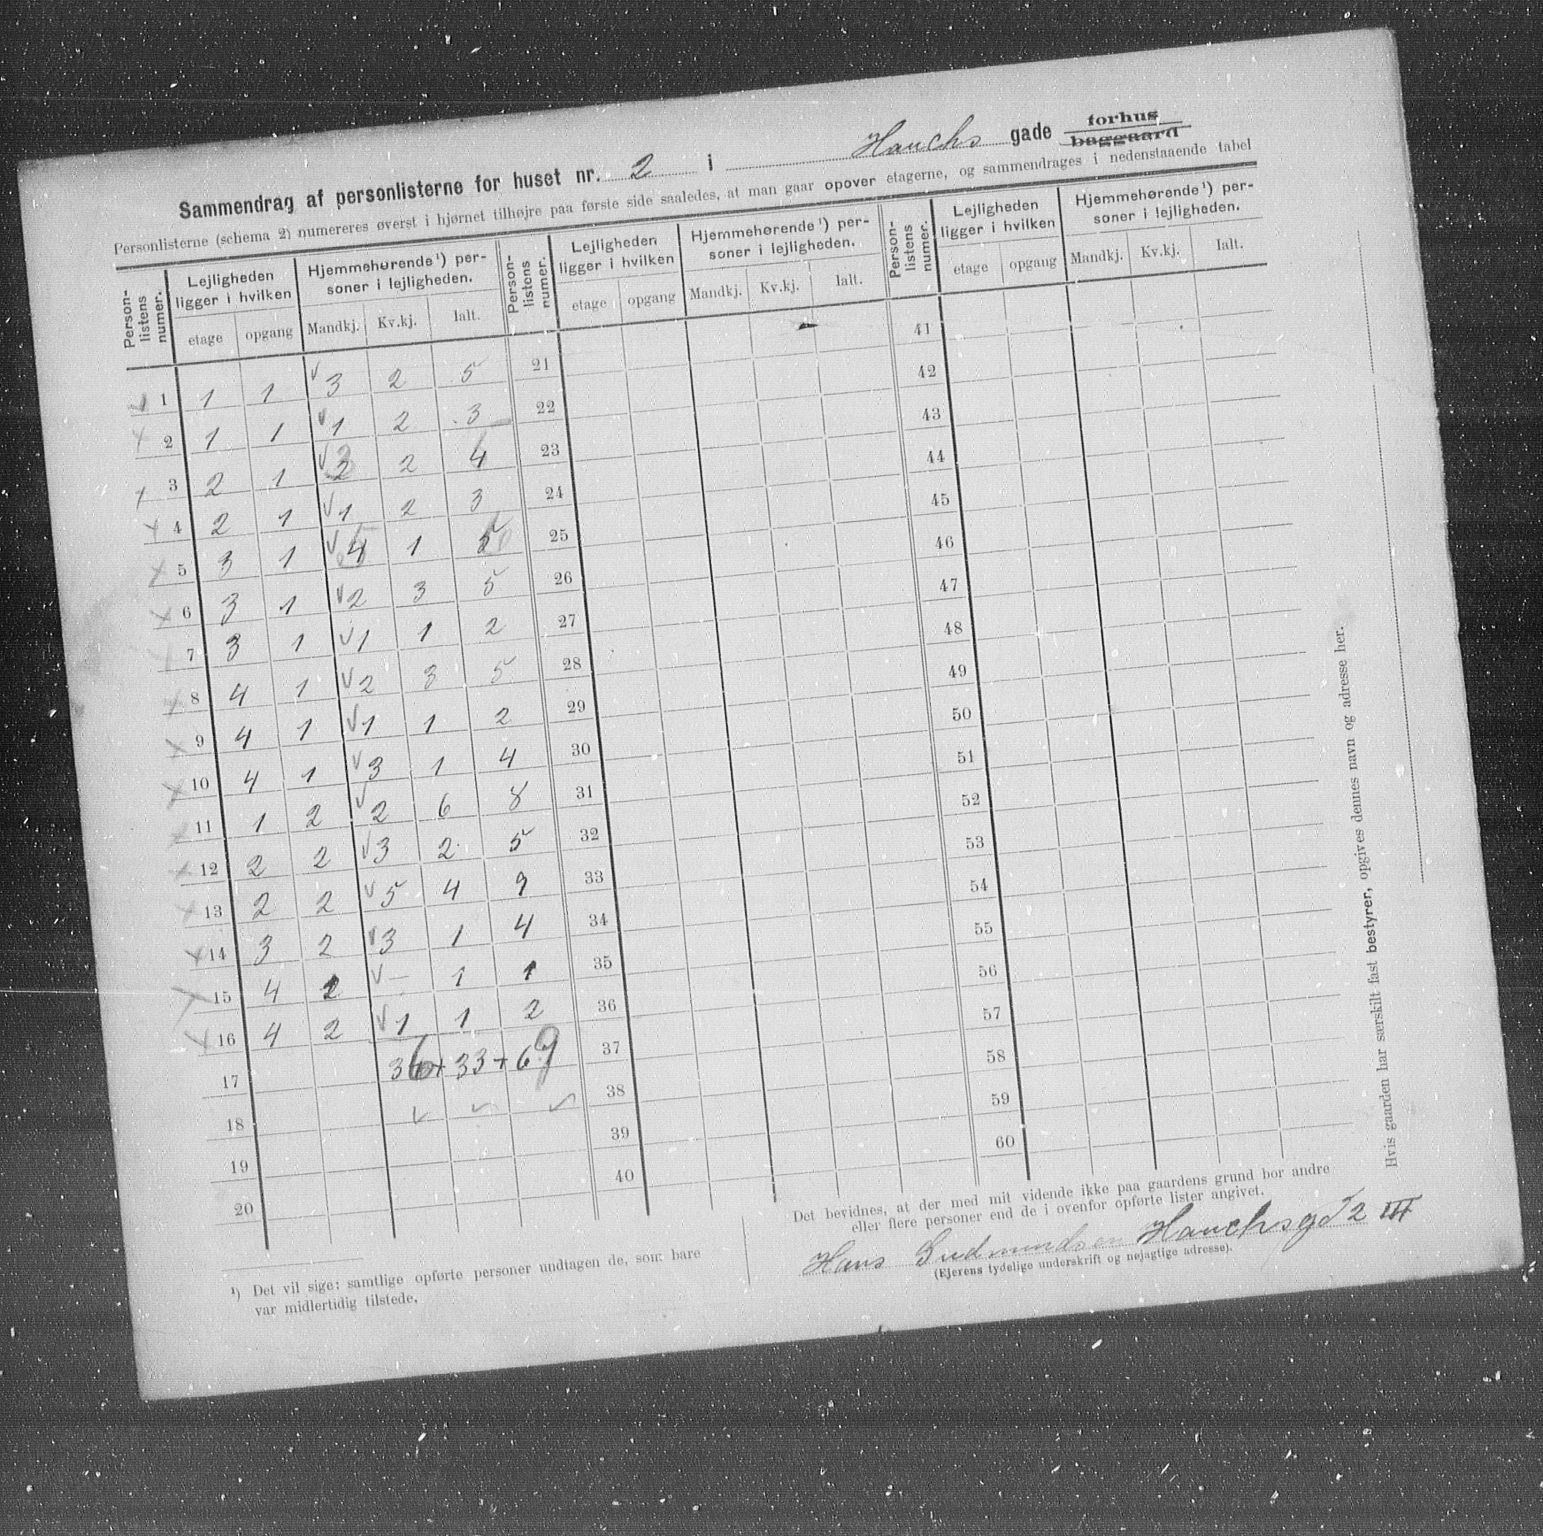 Sammendrag af personlisterne for huset nr. 2 i Hauchs gade forhus baggaard
Personlisterne (schema 2) numereres øverst i hjørnet tilhøjre paa første side saaledes, at man gaar opover etagerne, og sammendrages i nedenstaaende tabel
Personlistens numer. Lejligheden ligger i hvilken etage opgang Hjemmehørende¹) personer i lejligheden. Mandkj. Kv.kj. Ialt.
Personlistens numer. Lejligheden ligger i hvilken etage opgang Hjemmehørende¹) personer i lejligheden. Mandkj. Kv.kj. Ialt.
Personlistens numer. Lejligheden ligger i hvilken etage opgang Hjemmehørende¹) personer i lejligheden. Mandkj. Kv.kj. Ialt.
1 1 1 3 2 5
2 1 1 1 2 3
3 2 1 2 2 4
4 2 1 1 2 3
5 3 1 4 1 5
6 3 1 2 3 5
7 3 1 1 1 2
8 4 1 2 3 5
9 4 1 1 1 2
10 4 1 3 1 4
11 1 2 2 6 8
12 2 2 3 2 5
13 2 2 5 4 9
14 3 2 3 1 4
15 4 2 — 1 1
16 4 2 1 1 2
17 36 + 33 + 69
18
19
20
21
22
23
24
25
26
27
28
29
30
31
32
33
34
35
36
37
38
39
40
41
42
43
44
45
46
47
48
49
50
51
52
53
54
55
56
57
58
59
60
¹) Det vil sige: samtlige opførte personer undtagen de, som bare
var midlertidig tilstede.
Det bevidnes, at der med mit vidende ikke paa gaardens grund bor andre
eller flere personer end de i ovenfor opførte lister angivet.
Hans Gudmundsen Hauchsgd 2 III
(Ejerens tydelige underskrift og nøjagtige adresse).
Hvis gaarden har særskilt fast bestyrer, opgives dennes navn og adresse her.